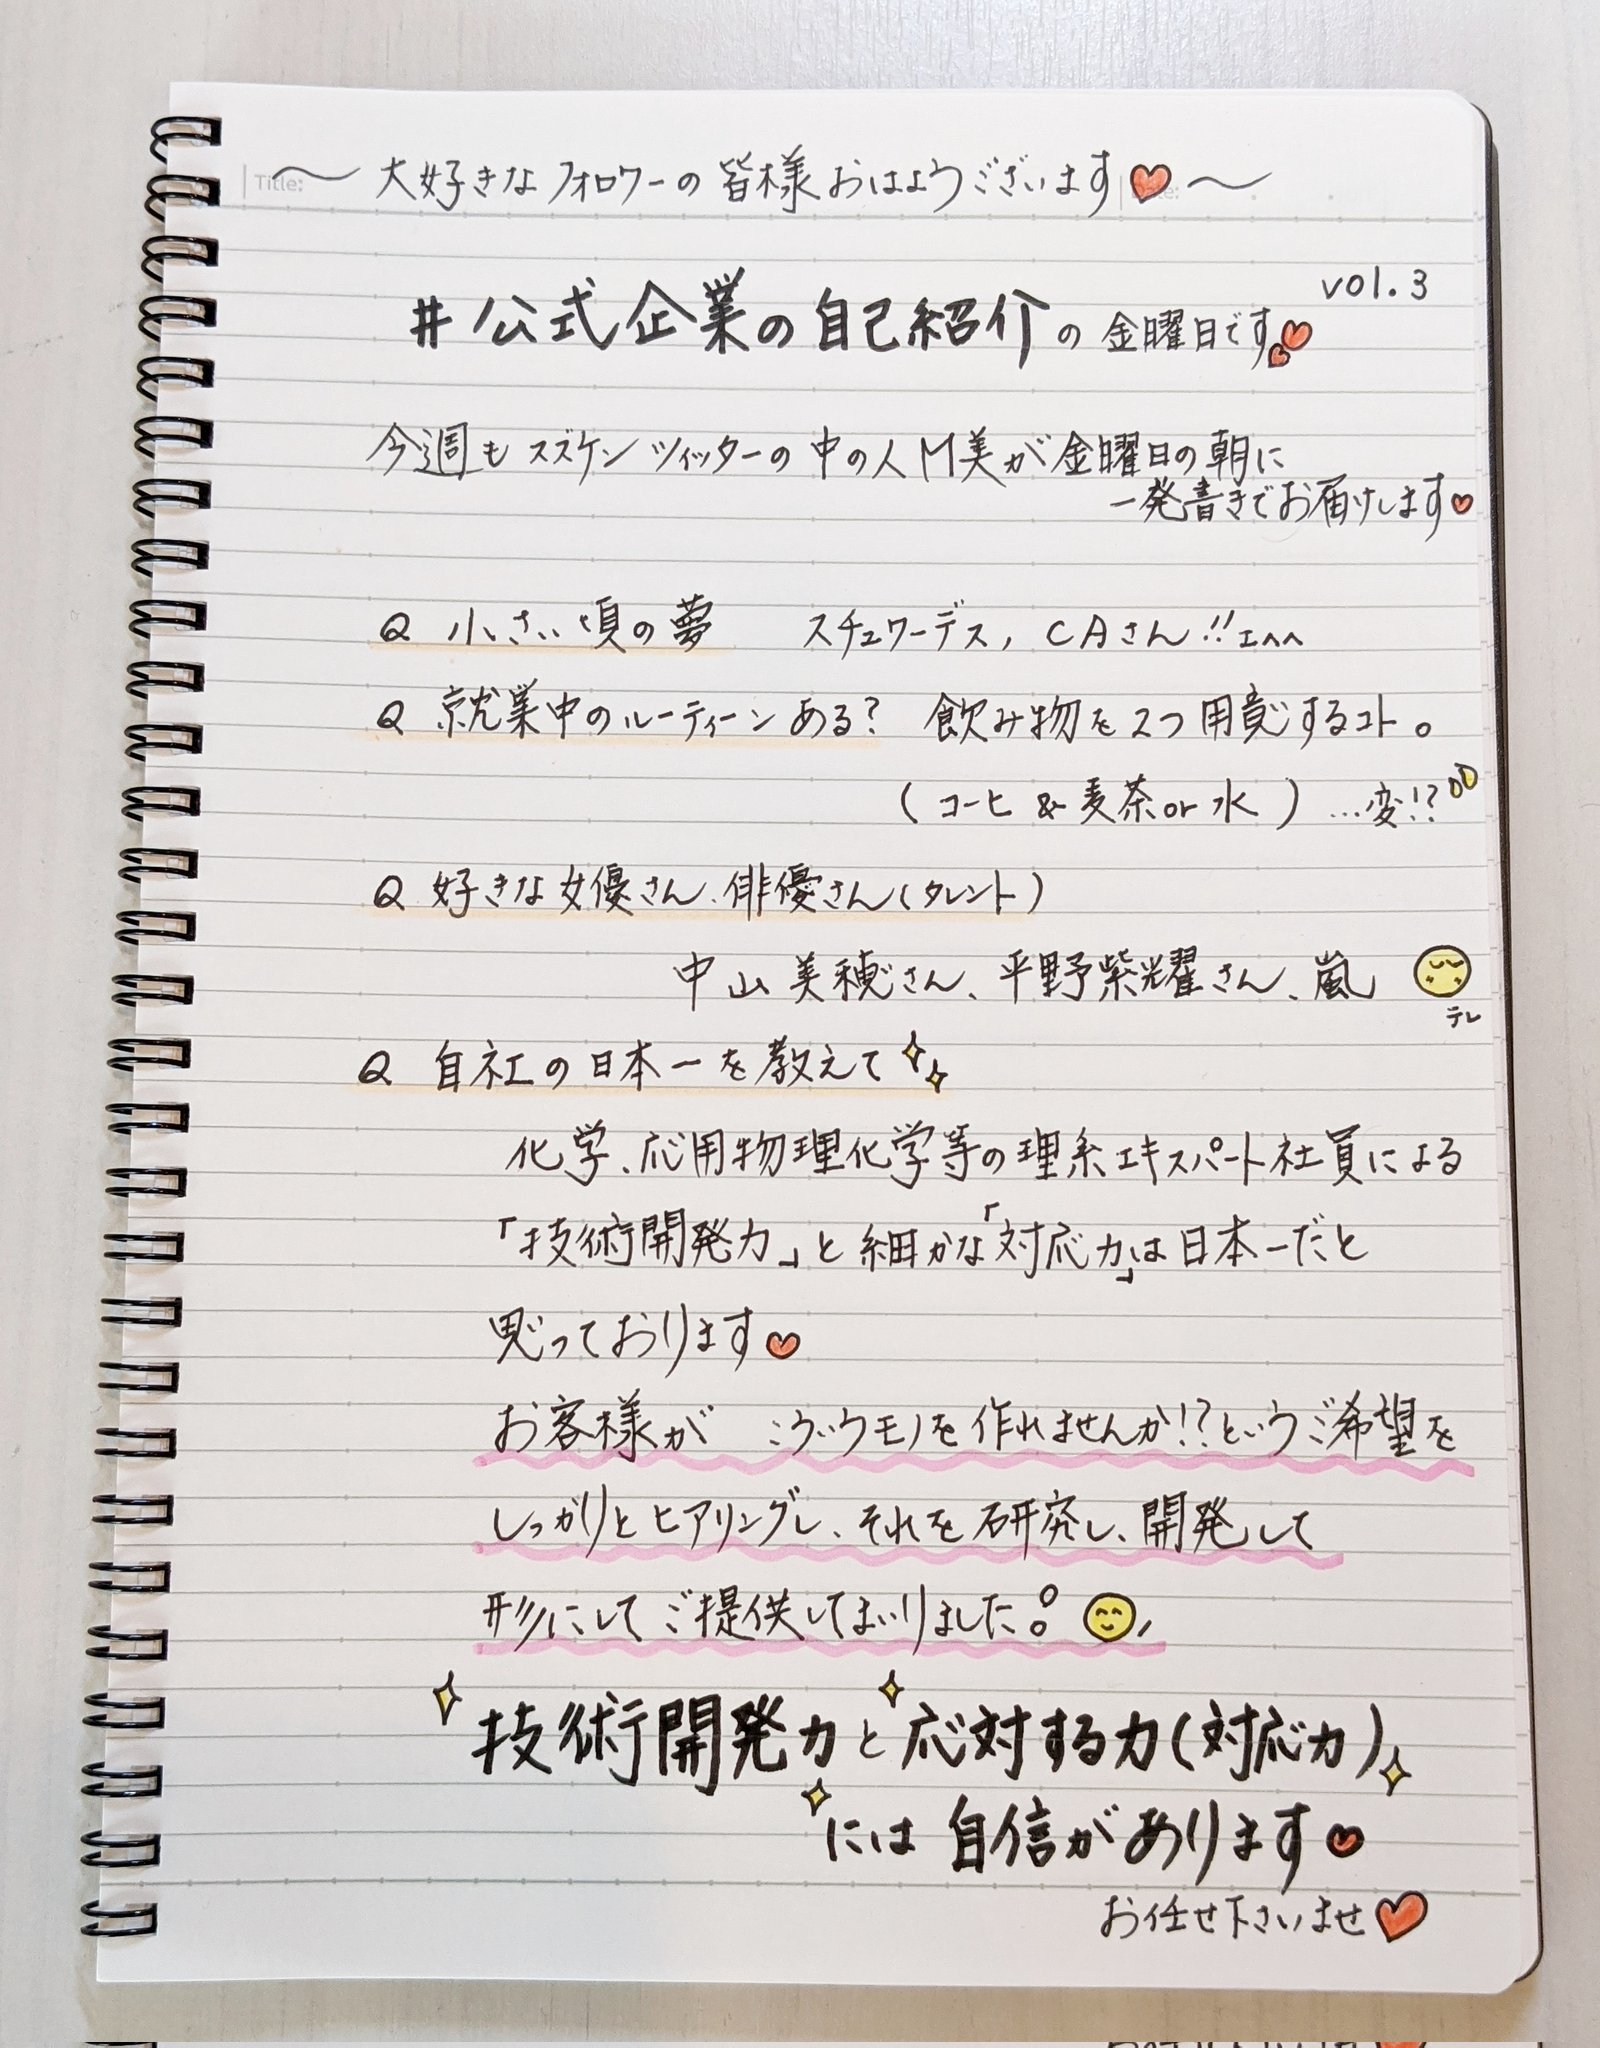 Title:
〜大好きなフォロワーの皆様おはようございます❤〜
vol.3
#公式企業の自己紹介の金曜日です
今週もスズケンツイッターの中の人M美が金曜日の朝に
一発書きでお届けします
Q 小さい頃の夢 スチュワーデス,CAさん!!エヘヘ
Q 就業中のルーティーンある? 飲み物を2つ用意するコト。
(コーヒ&麦茶or水)…変!?
Q 好きな女優さん、俳優さん(タレント)
中山美穂さん、平野紫耀さん、嵐
テレ
Q 自社の日本一を教えて
化学、応用物理化学等の理系エキスパート社員による
「技術開発力」と細かな「対応力」は日本一だと
思っております
お客様が こういうモノを作れませんか!?というご希望を
しっかりとヒアリングし、それを研究し、開発して
形にしてご提供してまいりました。
技術開発力と応対する力(対応力)
には自信があります
お任せ下さいませ